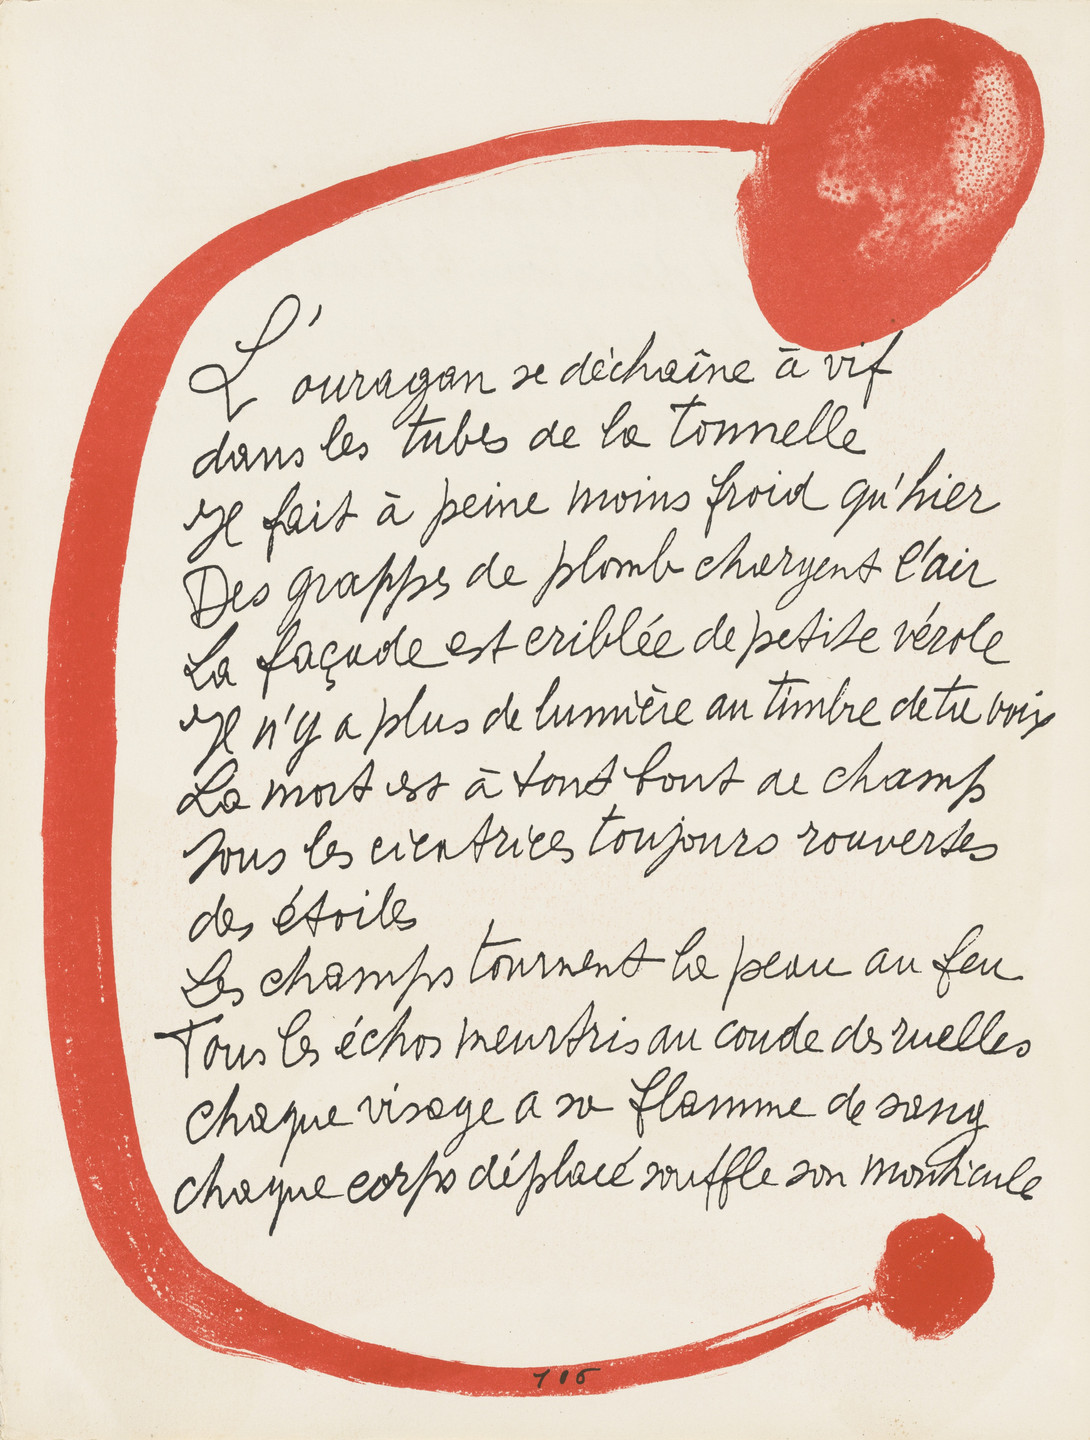 L'ouragan se déchaîne à vif
dans les tubes de la tonnelle
Il fait à peine moins froid qu'hier
Des grappes de plomb chargent l'air
La façade est criblée de petite vérole
Il n'y a plus de lumière au timbre de ta voix
La mort est à tout bout de champ
Sous les cicatrices toujours rouvertes
des étoiles
Les champs tournent la peau au feu
Tous les échos meurtris au coude des ruelles
chaque visage a sa flamme de sang
chaque corps déplacé souffle son monticule
106